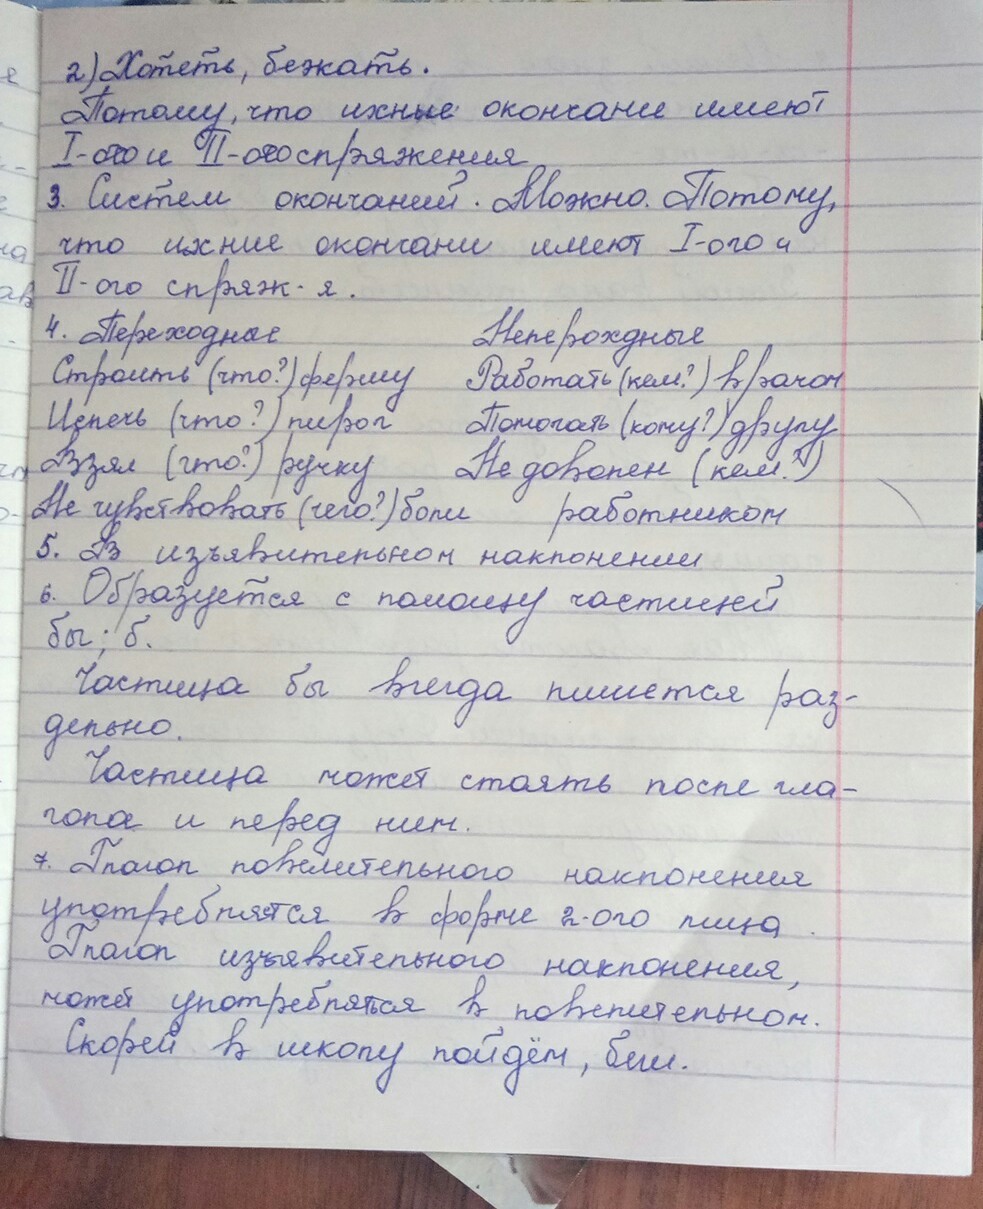 2) Хотеть, бежать.
Потому, что ихные окончани имеют
I-ого и II-ого спряжения
3. Систем окончаний. Можно. Потому,
что ихние окончани имеют I-ого и
II-ого спряж-я.
4. Переходные Непероходные
Строить (что?) ферму Работать (кем?) врачом
Испечь (что?) пирог Помогать (кому?) другу
Взял (что?) ручку Не доволен (кем?)
Не чувствовать (чего?) боли работником
5. В изъявительном наклонении
6. Образуется с помощу частицей
бы; б.
Частица бы всегда пишется раз-
дельно.
Частица может стоять после гла-
гола и перед ним.
7. Глагол повелительного наклонения
употребляется в форме 2-ого лица.
Глагол изъявительного наклонения,
может употребляться в повелительном.
Скорей в школу пойдём, беги.